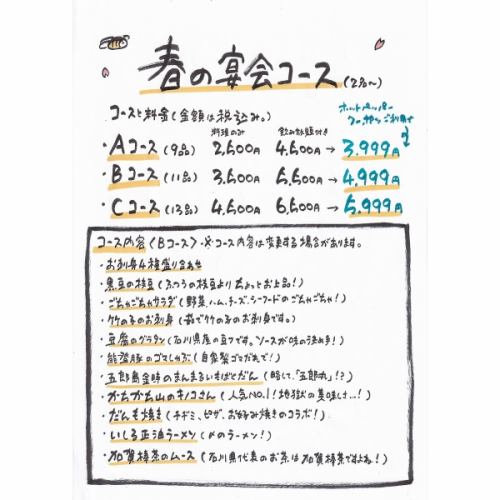 春の宴会コース(2名〜)
コースと料金(金額は税込み。)
料理のみ 飲み放題付き ホットペッパークーポンご利用で
・Aコース(9品) 2,500円 4,500円→3,999円
・Bコース(11品) 3,500円 5,500円→4,999円
・Cコース(13品) 4,500円 6,500円→5,999円
コース内容〈Bコース〉・※コース内容は変更する場合があります。
・お刺身4種盛り合わせ
・黒豆の枝豆(ふつうの枝豆よりちょっとお上品!)
・ごちゃごちゃサラダ(野菜、ハム、チーズ、シーフードのごちゃごちゃ!)
・竹の子のお刺身(茹で竹の子のお刺身です。)
・豆腐のグラタン(石川県産の豆フです。ソースが味の決め手!)
・能登豚のゴマしゃぶ(自家製ゴマだれで!)
・五郎島金時のまんまるいもばとだん(略して、「五郎丸」!?)
・かちかち山のキノコさん(人気NO.1!地獄の美味し...!)
・だんも焼き(チヂミ、ピザ、お好み焼きのコラボ!)
・いしる正油ラーメン(〆のラーメン!)
・加賀棒茶のムース(石川県代表のお茶は加賀棒茶ですよね!)